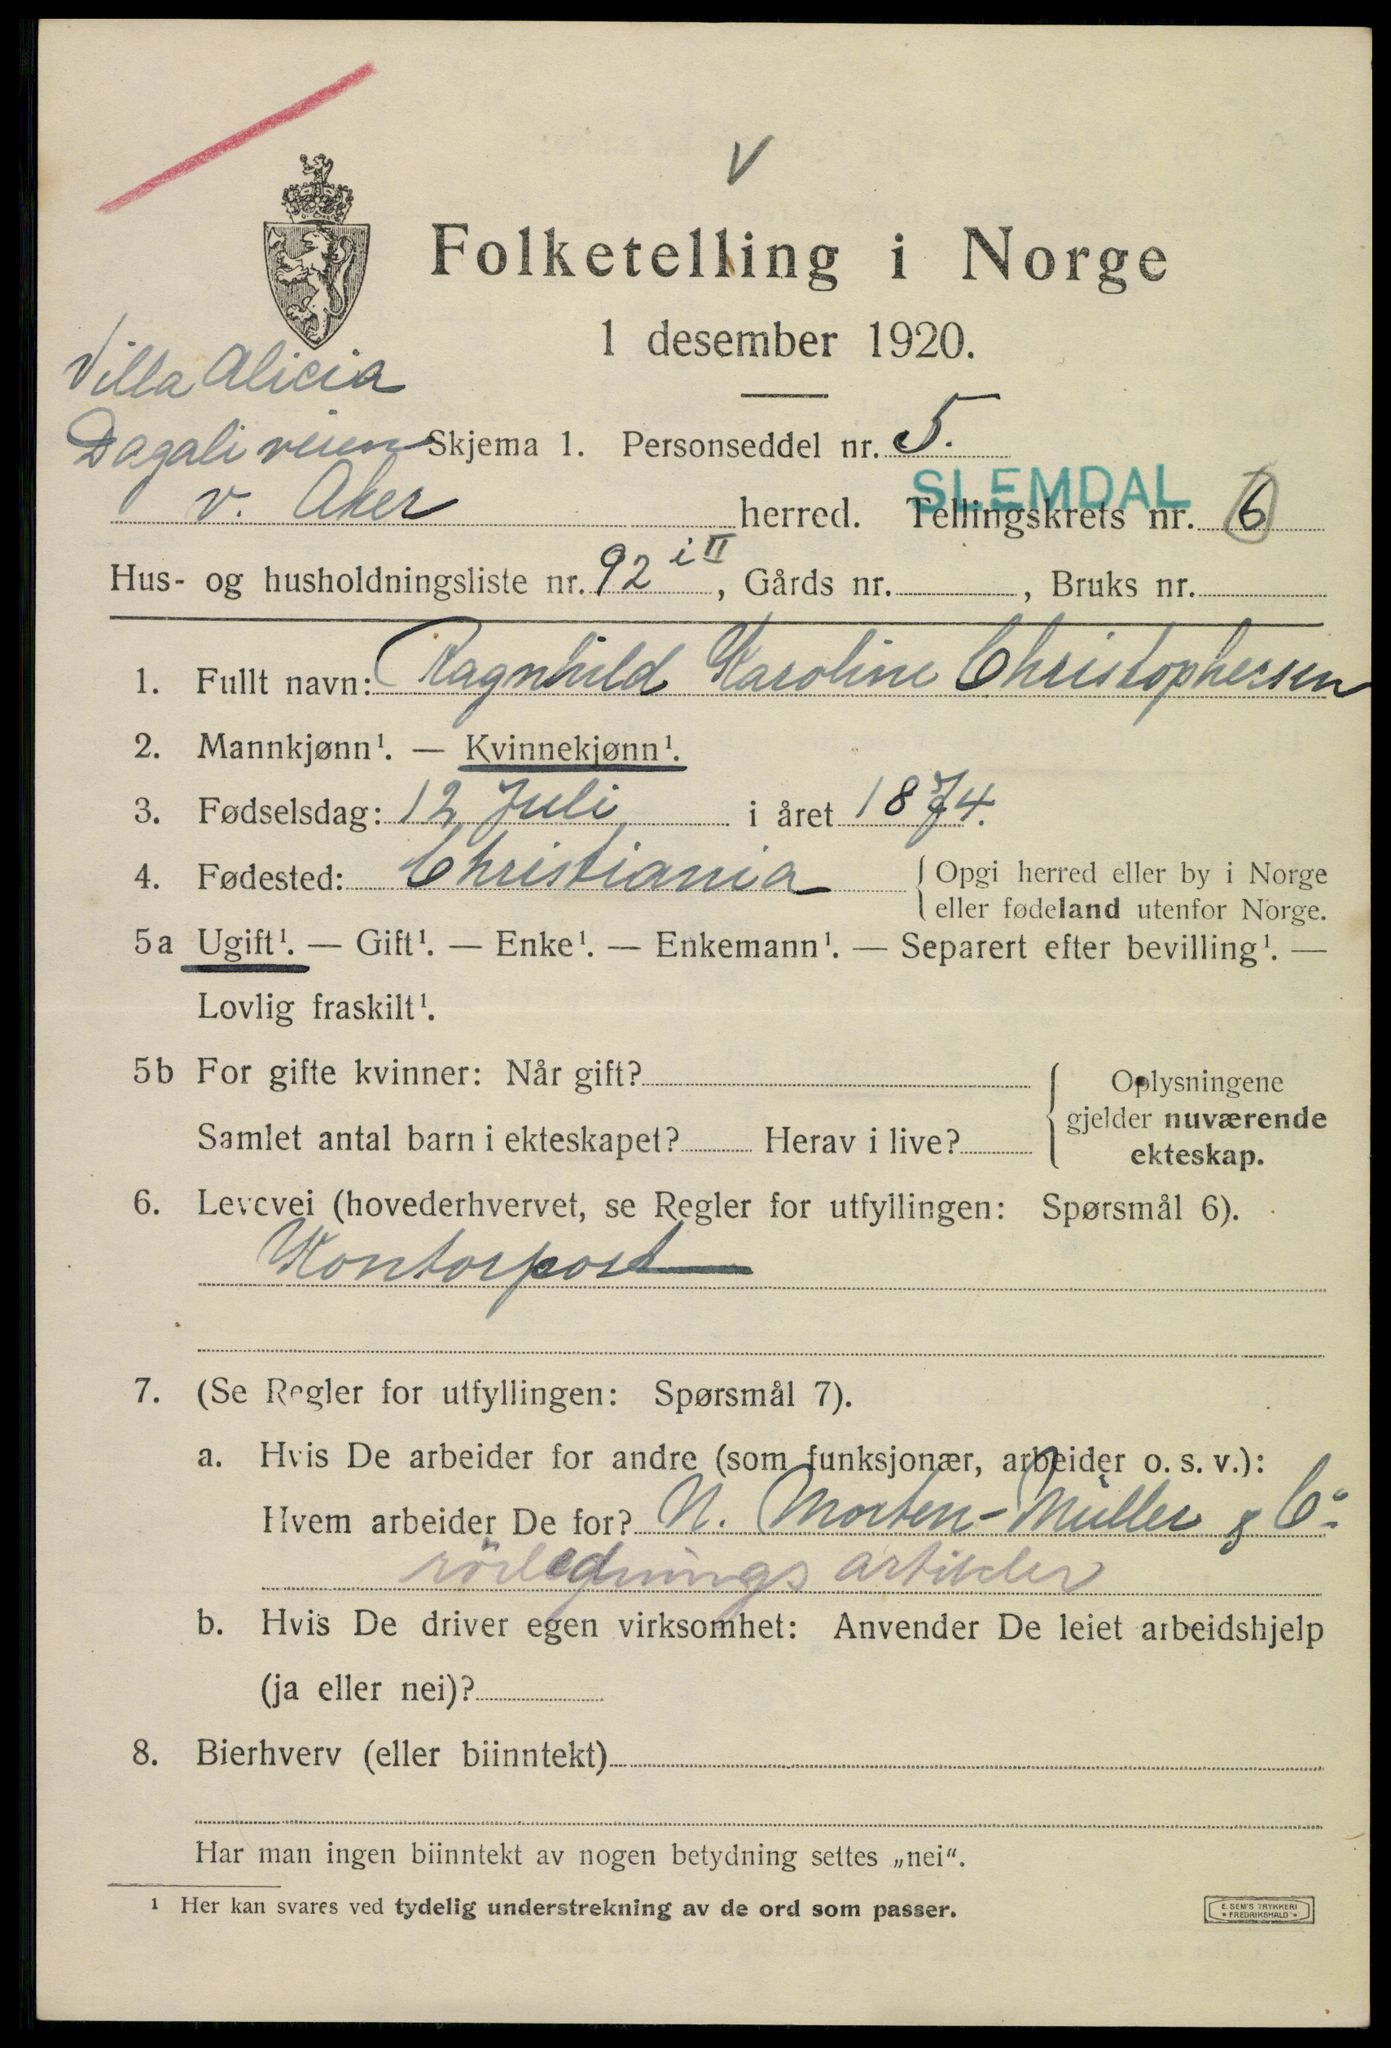 V
Folketelling i Norge
1 desember 1920.
Villa Alicia
Dagaliveien
Skjema 1. Personseddel nr. 5.
SLEMDAL
v. Aker herred. Tellingskrets nr. 6
Hus- og husholdningsliste nr. 92 i II, Gårds nr. , Bruks nr.
1. Fullt navn: Ragnhild Karoline Christophersen
2. Mannkjønn¹. — Kvinnekjønn¹.
3. Fødselsdag: 12 Juli i året 1874.
4. Fødested: Christiania { Opgi herred eller by i Norge
eller fødeland utenfor Norge.
5a Ugift¹. — Gift¹. — Enke¹. — Enkemann¹. — Separert efter bevilling¹. —
Lovlig fraskilt¹.
5b For gifte kvinner: Når gift?
Samlet antal barn i ekteskapet? Herav i live?
{ Oplysningene
gjelder nuværende
ekteskap.
6. Levevei (hovederhvervet, se Regler for utfyllingen: Spørsmål 6).
Kontorpost
7. (Se Regler for utfyllingen: Spørsmål 7).
a. Hvis De arbeider for andre (som funksjonær, arbeider o. s. v.):
Hvem arbeider De for? N. Morten-Müller & Co
rörledningsartikler
b. Hvis De driver egen virksomhet: Anvender De leiet arbeidshjelp
(ja eller nei)?
8. Bierhverv (eller biinntekt)
Har man ingen biinntekt av nogen betydning settes „nei“.
¹ Her kan svares ved tydelig understrekning av de ord som passer.
E. SEM'S TRYKKERI
* FREDRIKSHALD *